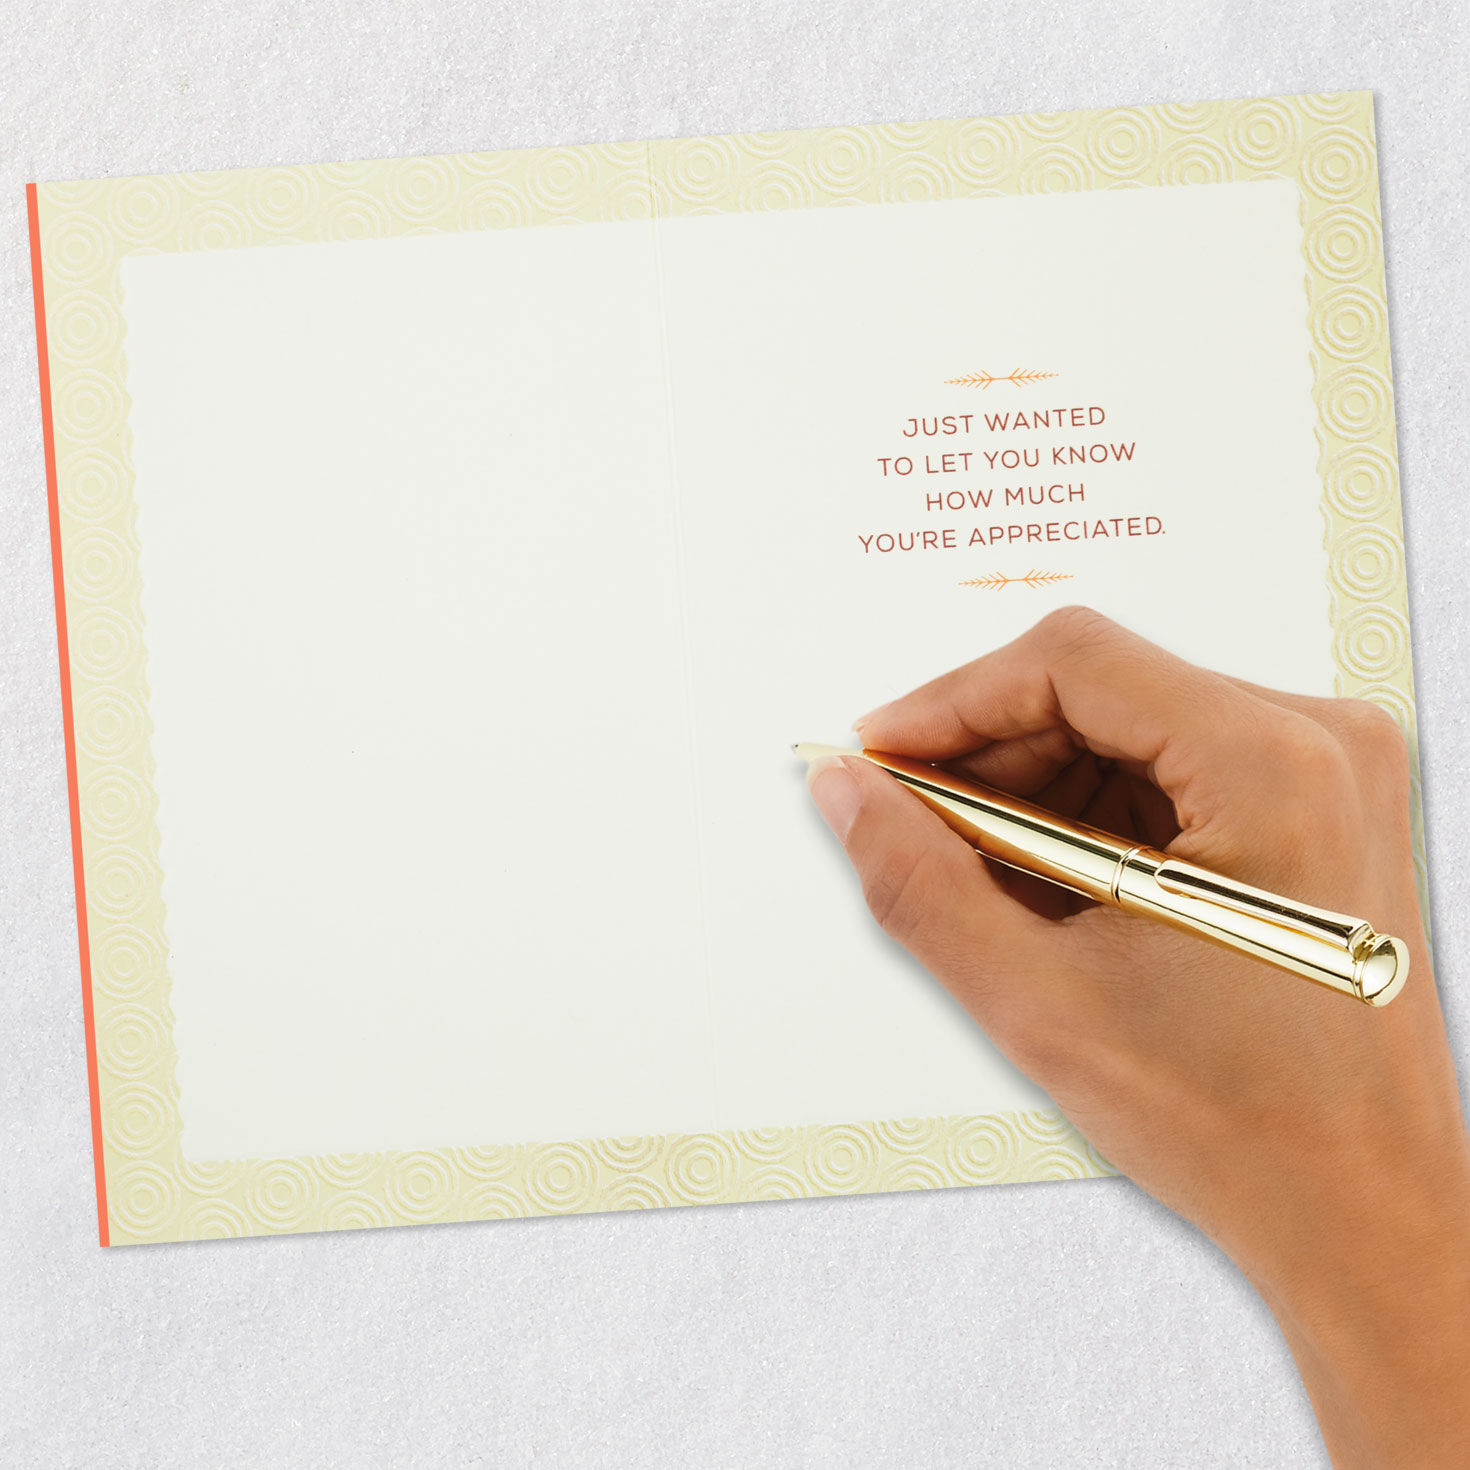 JUST WANTED
TO LET YOU KNOW
HOW MUCH
YOU'RE APPRECIATED.